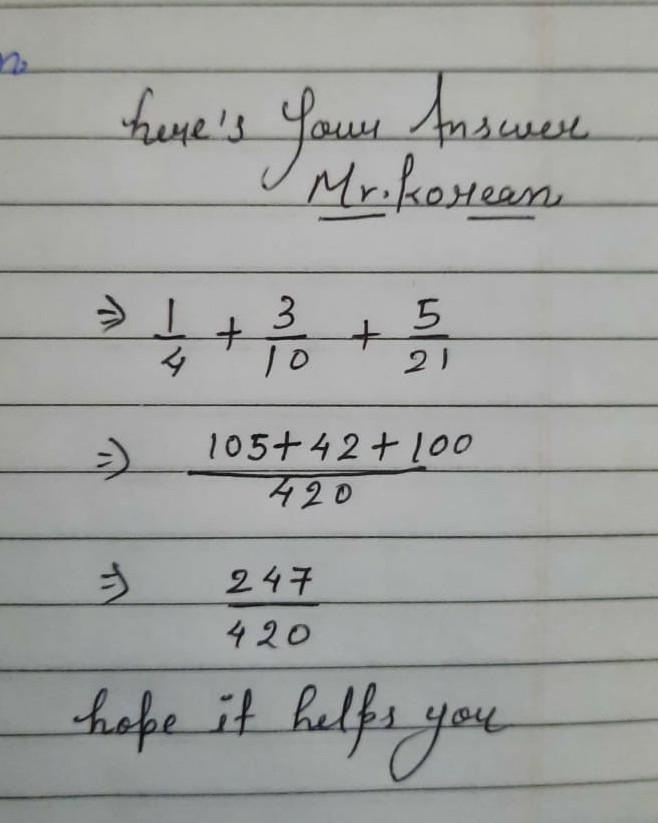 here's your Answer
Mr. korean
⇒ 1/4 + 3/10 + 5/21
⇒ 105+42+100/420
⇒ 247/420
hope it helps you